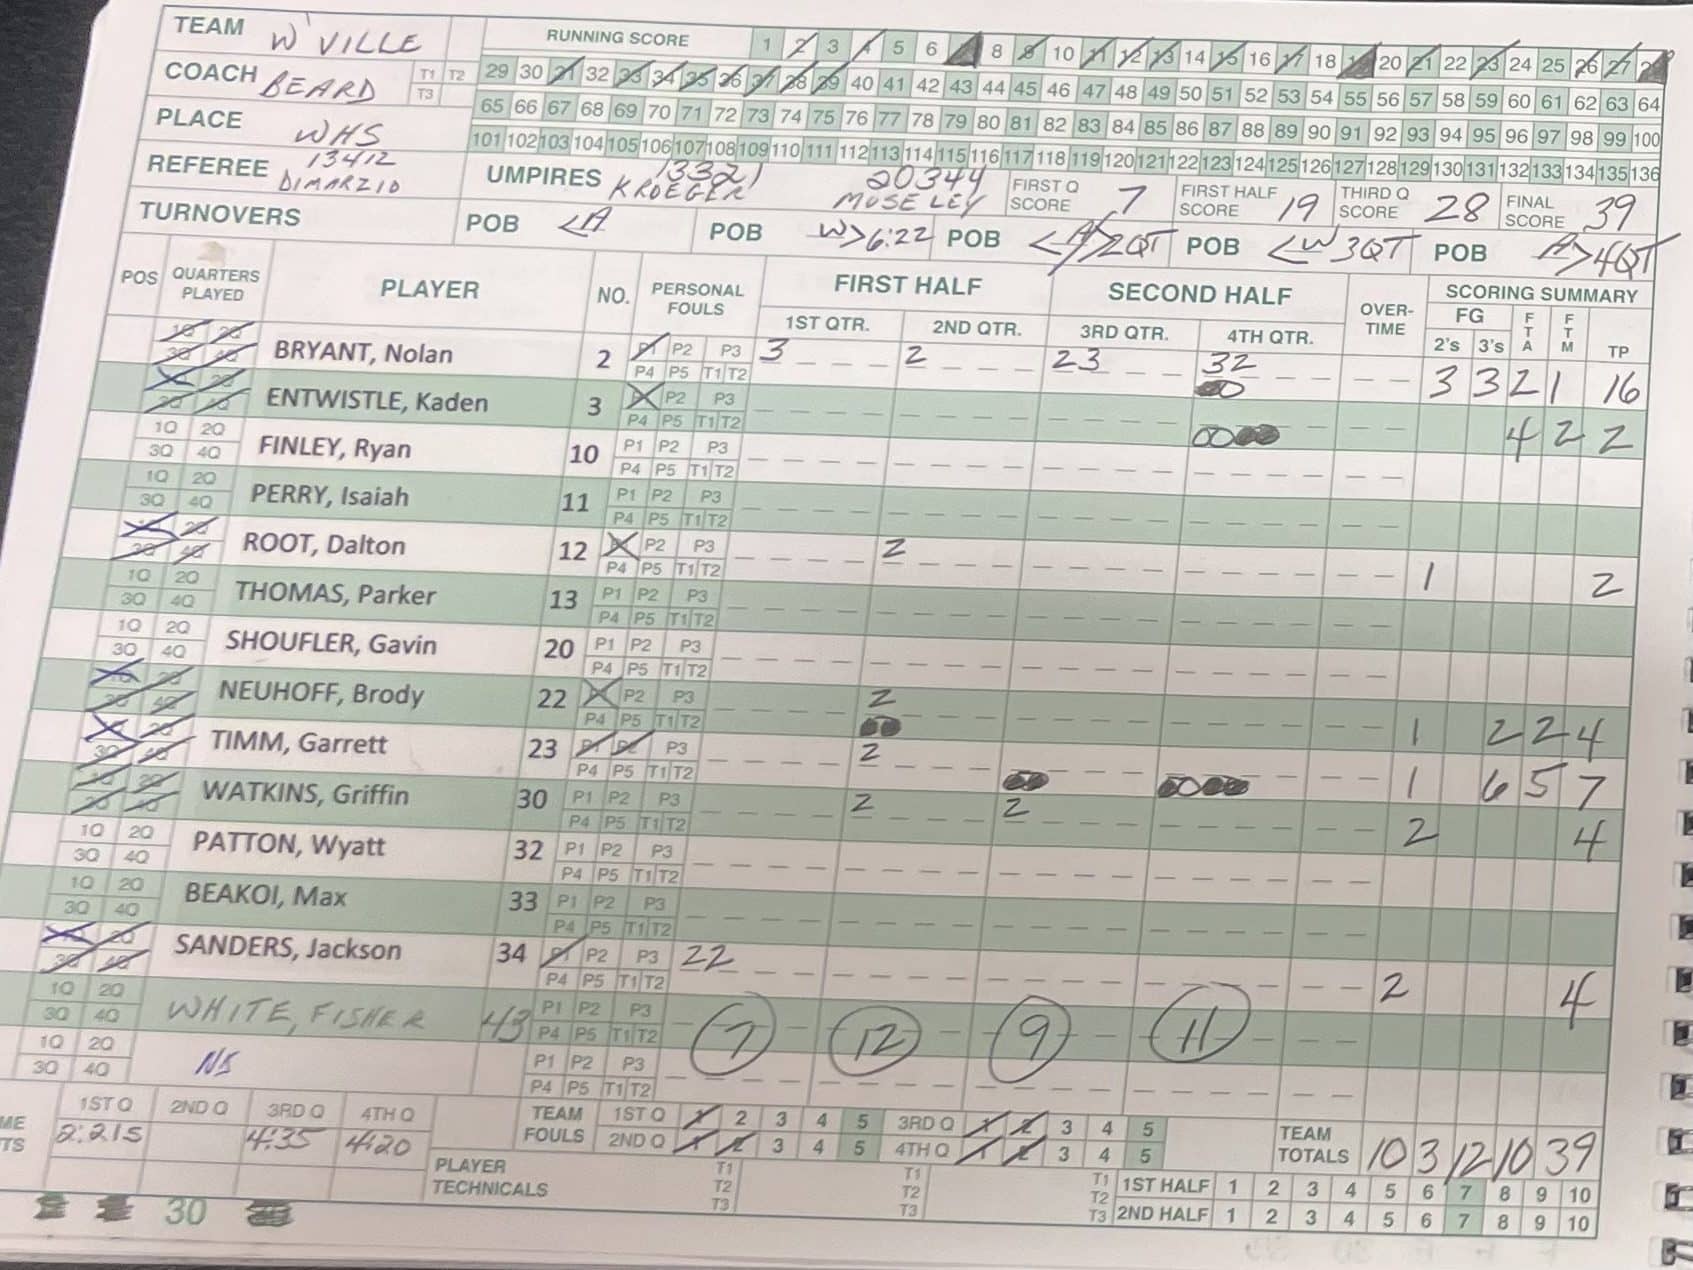 TEAM W'VILLE RUNNING SCORE 1 2 3 4 5 6 7 8 9 10 11 12 13 14 15 16 17 18 19 20 21 22 23 24 25 26 27 28
COACH BEARD T1 T2 T3 29 30 31 32 33 34 35 36 37 38 39 40 41 42 43 44 45 46 47 48 49 50 51 52 53 54 55 56 57 58 59 60 61 62 63 64
65 66 67 68 69 70 71 72 73 74 75 76 77 78 79 80 81 82 83 84 85 86 87 88 89 90 91 92 93 94 95 96 97 98 99 100
PLACE WHS 101 102 103 104 105 106 107 108 109 110 111 112 113 114 115 116 117 118 119 120 121 122 123 124 125 126 127 128 129 130 131 132 133 134 135 136
REFEREE 13412 DIMARZIO UMPIRES 13321 KROEGER 20344 MOSELEY FIRST Q SCORE 7 FIRST HALF SCORE 19 THIRD Q SCORE 28 FINAL SCORE 39
TURNOVERS POB <A POB W>6:22 POB <A/>2QT POB <W 3QT POB A>4QT
POS QUARTERS PLAYED PLAYER NO. PERSONAL FOULS FIRST HALF SECOND HALF OVER-TIME SCORING SUMMARY
1ST QTR. 2ND QTR. 3RD QTR. 4TH QTR. FG 2's 3's FTA FTM TP
1Q 2Q 3Q 4Q BRYANT, Nolan 2 P1 P2 P3 P4 P5 T1 T2 3 2 23 32 3 3 2 1 16
1Q 2Q 3Q 4Q ENTWISTLE, Kaden 3 P1 P2 P3 P4 P5 T1 T2 4 2 2
1Q 2Q 3Q 4Q FINLEY, Ryan 10 P1 P2 P3 P4 P5 T1 T2
1Q 2Q 3Q 4Q PERRY, Isaiah 11 P1 P2 P3 P4 P5 T1 T2
1Q 2Q 3Q 4Q ROOT, Dalton 12 P1 P2 P3 P4 P5 T1 T2 2 1 2
1Q 2Q 3Q 4Q THOMAS, Parker 13 P1 P2 P3 P4 P5 T1 T2
1Q 2Q 3Q 4Q SHOUFLER, Gavin 20 P1 P2 P3 P4 P5 T1 T2
1Q 2Q 3Q 4Q NEUHOFF, Brody 22 P1 P2 P3 P4 P5 T1 T2 2 1 2 2 4
1Q 2Q 3Q 4Q TIMM, Garrett 23 P1 P2 P3 P4 P5 T1 T2 2 1 6 5 7
1Q 2Q 3Q 4Q WATKINS, Griffin 30 P1 P2 P3 P4 P5 T1 T2 2 2 2 4
1Q 2Q 3Q 4Q PATTON, Wyatt 32 P1 P2 P3 P4 P5 T1 T2
1Q 2Q 3Q 4Q BEAKOI, Max 33 P1 P2 P3 P4 P5 T1 T2
1Q 2Q 3Q 4Q SANDERS, Jackson 34 P1 P2 P3 P4 P5 T1 T2 22 2 4
1Q 2Q 3Q 4Q WHITE, FISHER 43 P1 P2 P3 P4 P5 T1 T2 7 12 9 11
1Q 2Q 3Q 4Q P1 P2 P3 P4 P5 T1 T2
1ST Q 2ND Q 3RD Q 4TH Q TEAM FOULS 1ST Q 1 2 3 4 5 3RD Q 1 2 3 4 5
2:215 4:35 4:20 2ND Q 1 2 3 4 5 4TH Q 1 2 3 4 5 TEAM TOTALS 10 3 12 10 39
PLAYER TECHNICALS T1 T2 T3 T1 T2 T3 T1 T2 T3 1ST HALF 1 2 3 4 5 6 7 8 9 10
2ND HALF 1 2 3 4 5 6 7 8 9 10
30